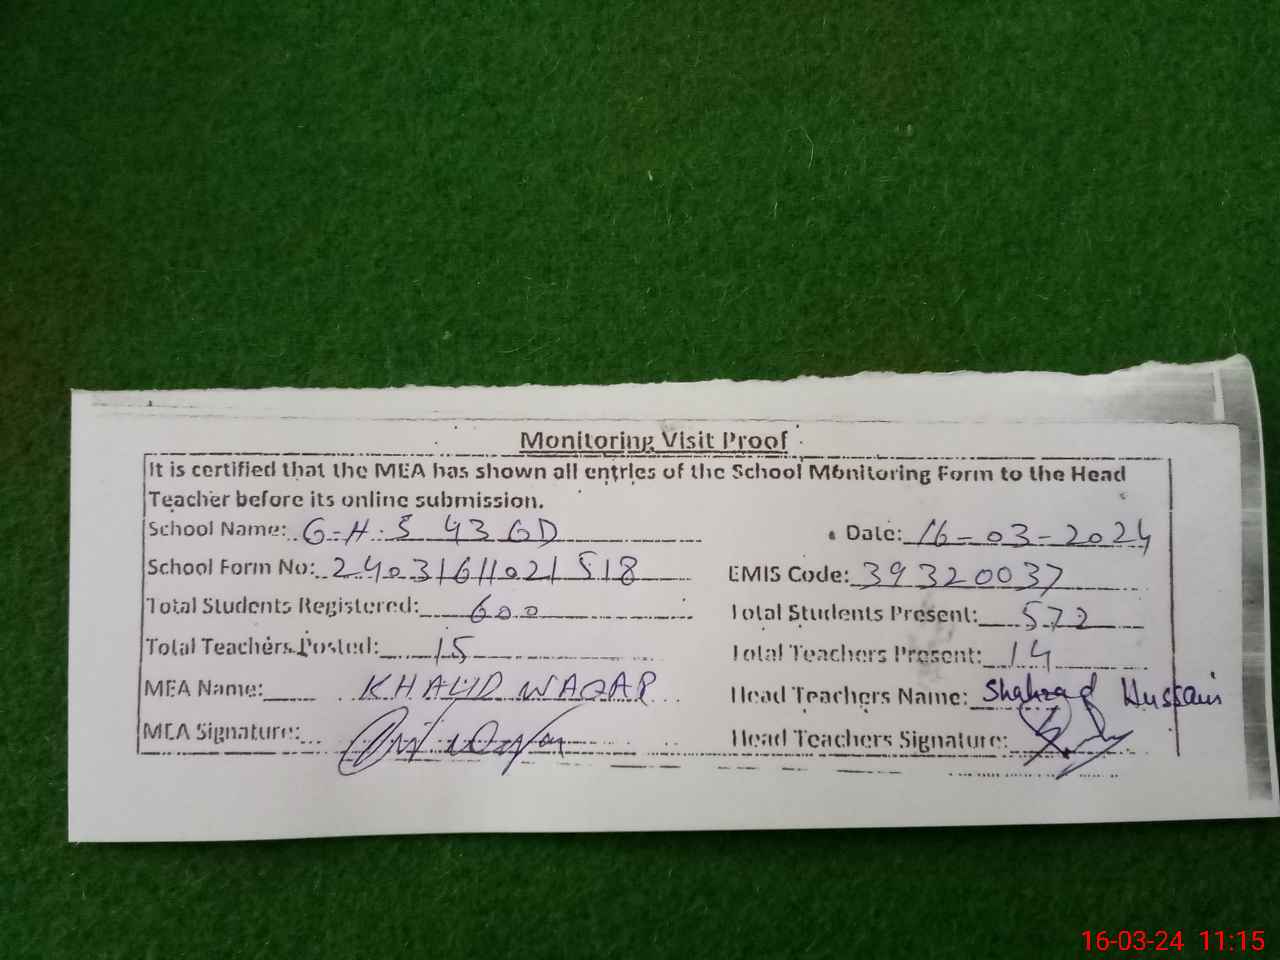 Monitoring Visit Proof
It is certified that the MEA has shown all entries of the School Monitoring Form to the Head
Teacher before its online submission.
School Name: G.H.S 43 GD Date: 16-03-2024
School Form No: 24031611021518 EMIS Code: 39320037
Total Students Registered: 600 Total Students Present: 572
Total Teachers Posted: 15 Total Teachers Present: 14
MEA Name: KHALID WAQAR Head Teachers Name: Shahzad Hussain
MEA Signature: Head Teachers Signature:
16-03-24 11:15